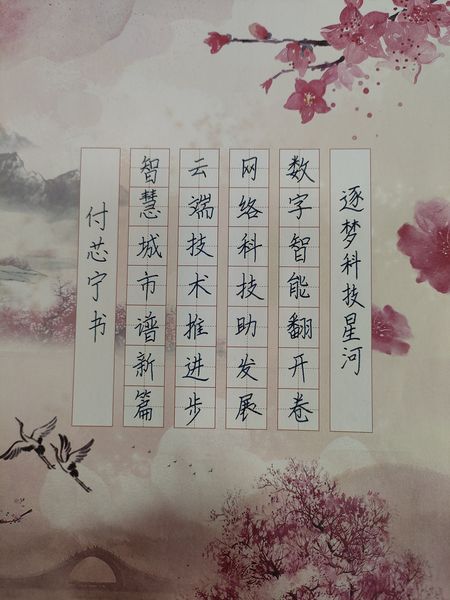 逐梦科技星河
数字智能翻开卷
网络科技助发展
云端技术推进步
智慧城市谱新篇
付芯宁书